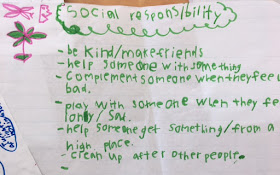 Social responsibility
- be kind/make friends
- help someone with something
- Complement someone when they feel
bad.
- play with someone when they fe
lonly/Sad.
- help someone get something/from a
high place.
- clean up after other people.
-